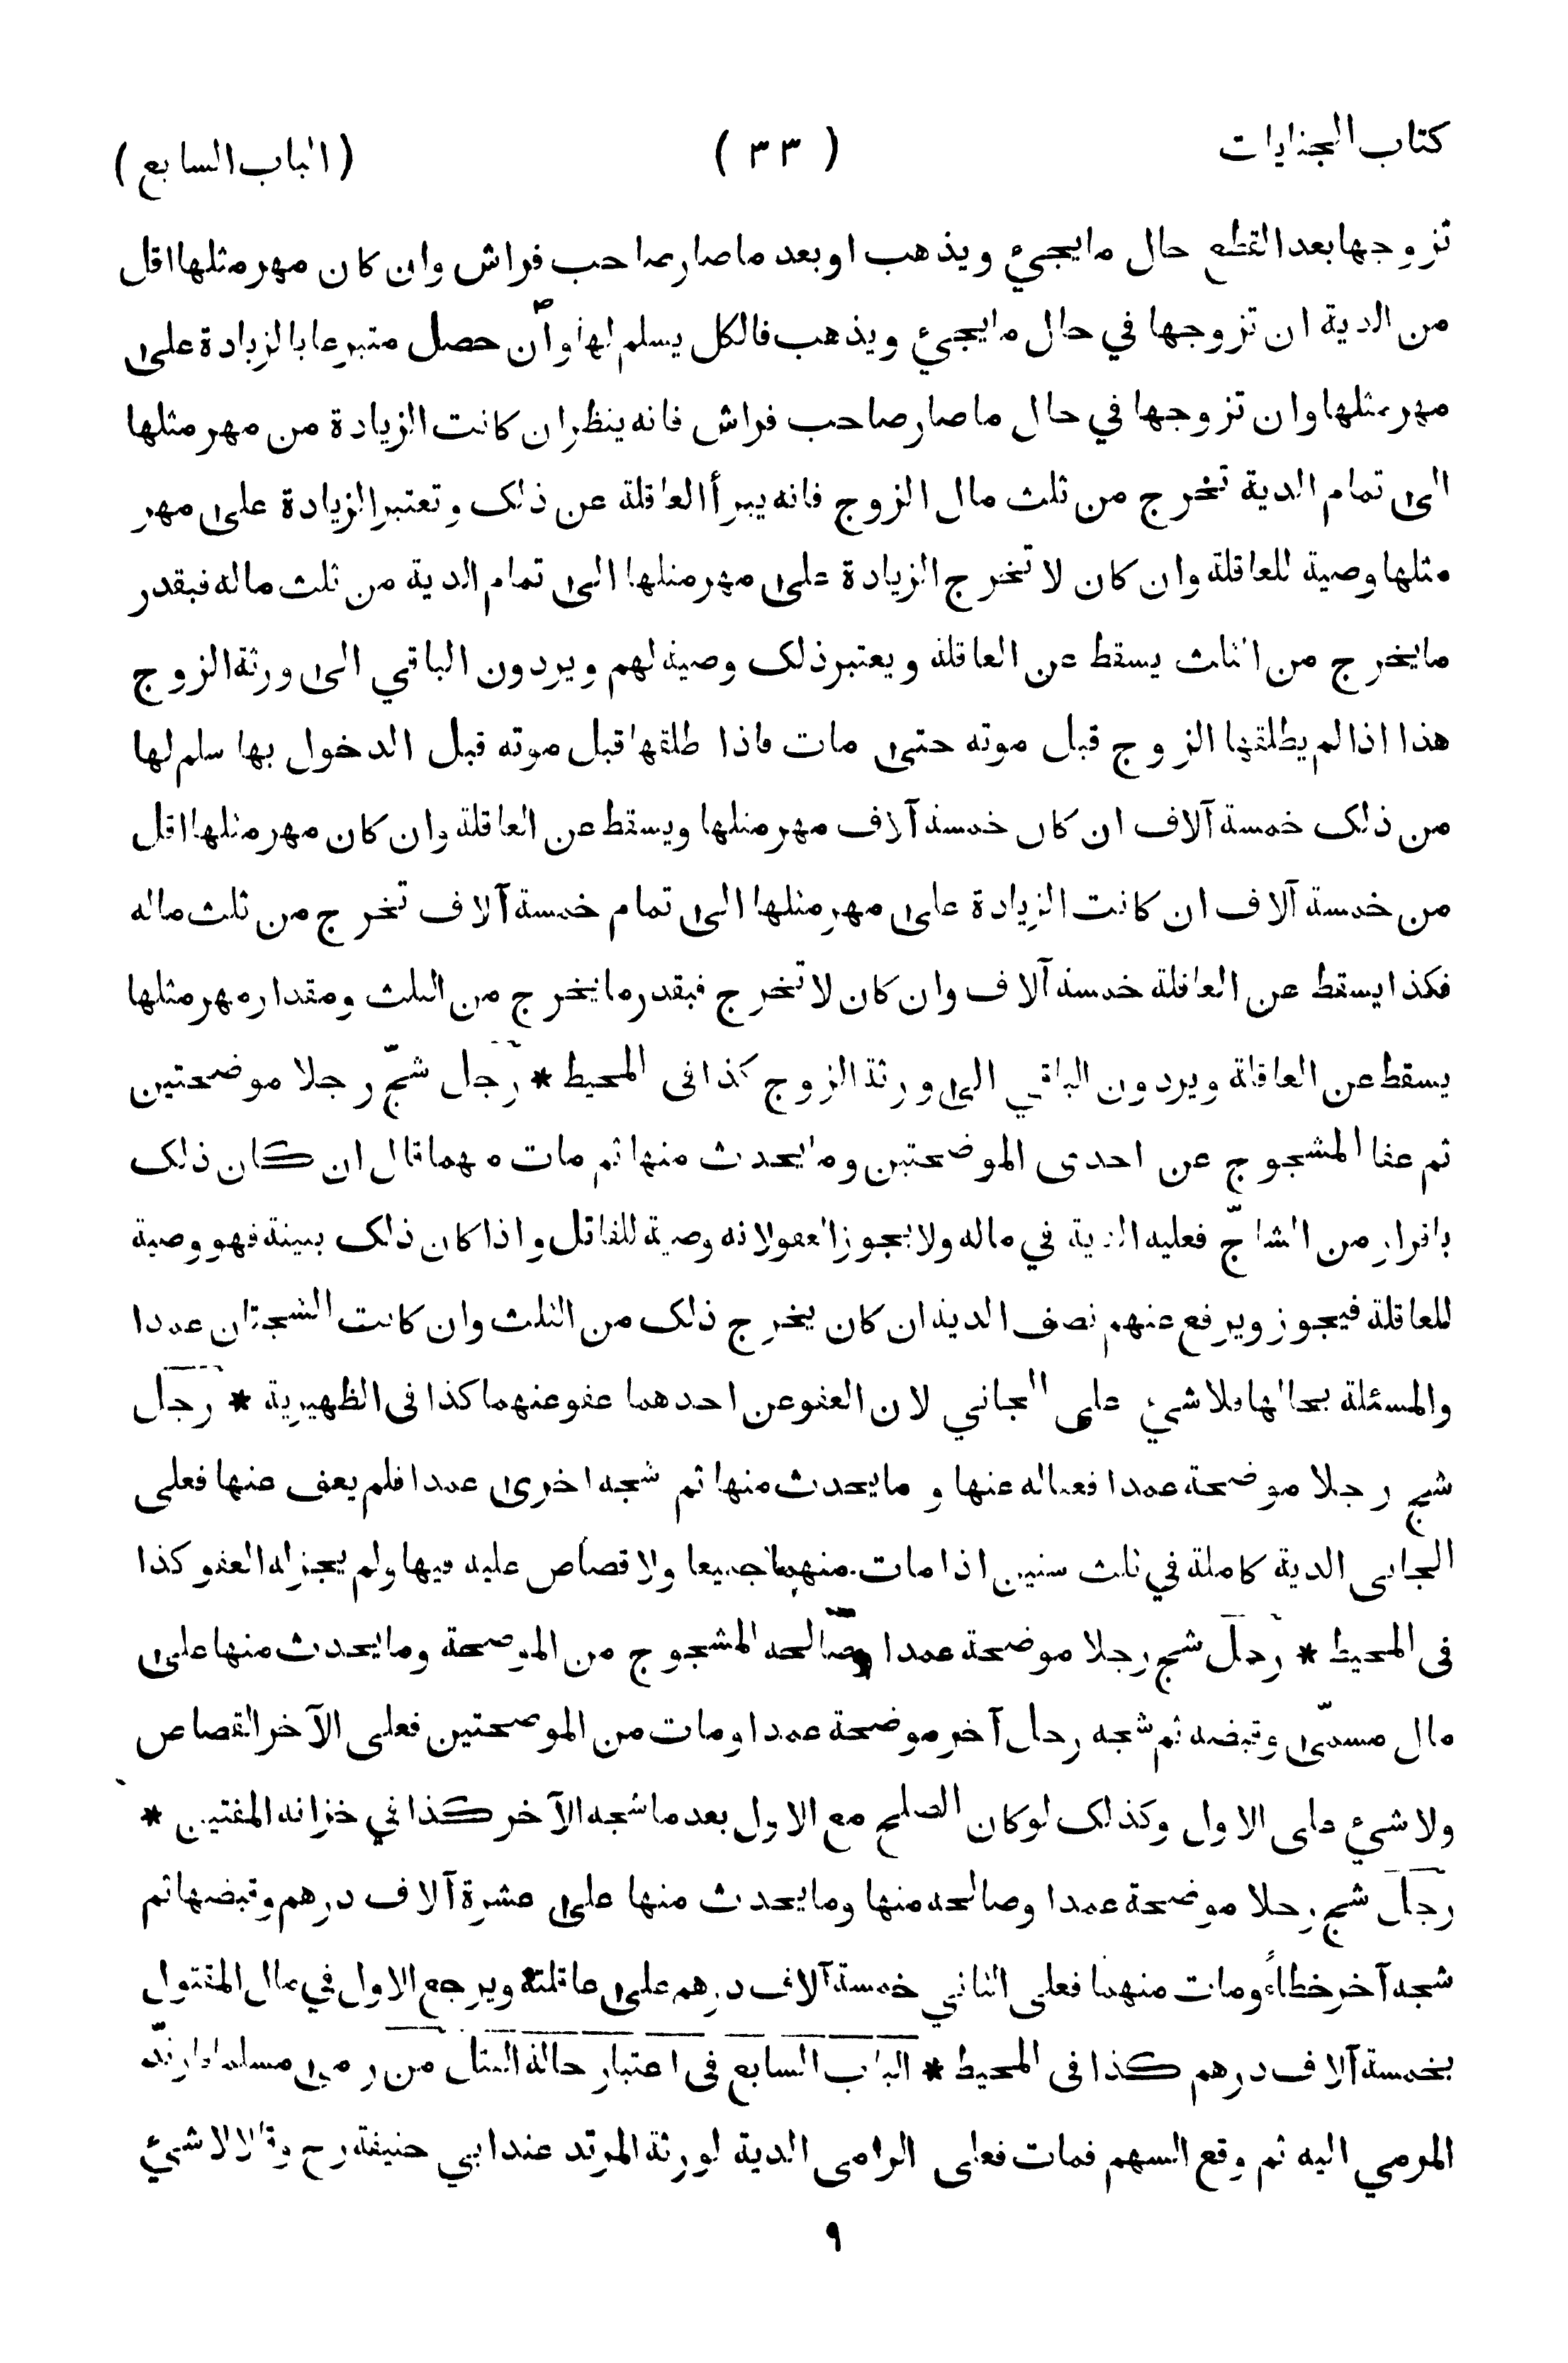 كتاب الجنايات
( ٣٣ )
( الباب السابع )
تزوجها بعد القطع حال ما يجيء ويذهب او بعد ما صار صاحب فراش وان كان مهر مثلها اقل
من الدية ان تزوجها في حال ما يجيء ويذهب فالكل يسلم لها وان حصل متبرعا بالزيادة على
مهر مثلها وان تزوجها في حال ما صار صاحب فراش فانه ينظر ان كانت الزيادة من مهر مثلها
الى تمام الدية تخرج من ثلث مال الزوج فانه يبرأ العاقلة عن ذلك وتعتبر الزيادة على مهر
مثلها وصية للعاقلة وان كان لا تخرج الزيادة على مهر مثلها الى تمام الدية من ثلث ماله فبقدر
ما يخرج من الثلث يسقط عن العاقلة ويعتبر ذلك وصية لهم ويردون الباقي الى ورثة الزوج
هذا اذا لم يطلقها الزوج قبل موته حتى مات فاذا طلقها قبل موته قبل الدخول بها سلم لها
من ذلك خمسة آلاف ان كان خمسة آلاف مهر مثلها ويسقط عن العاقلة وان كان مهر مثلها اقل
من خمسة آلاف ان كانت الزيادة على مهر مثلها الى تمام خمسة آلاف تخرج من ثلث ماله
فكذا يسقط عن العاقلة خمسة آلاف وان كان لا تخرج فبقدر ما يخرج من الثلث ومقدار مهر مثلها
يسقط عن العاقلة ويردون الباقي الى ورثة الزوج كذا فى المحيط * رجل شجّ رجلا موضحتين
ثم عفا المشجوج عن احدى الموضحتين وما يحدث منها ثم مات منهما قال ان كان ذلك
باقرار من الشاجّ فعليه الدية في ماله ولا يجوز العفو لانه وصية للقاتل واذا كان ذلك ببينة فهو وصية
للعاقلة فيجوز ويرفع عنهم نصف الدية ان كان يخرج ذلك من الثلث وان كانت الشجتان عمدا
والمسئلة بحالها فلا شيء على الجاني لان العفو عن احدهما عفو عنهما كذا فى الظهيرية * رجل
شج رجلا موضحة عمدا فعفا له عنها و ما يحدث منها ثم شجه اخرى عمدا فلم يعف عنها فعلى
الجانى الدية كاملة في ثلث سنين اذا مات منهما جميعا ولا قصاص عليه فيها ولم يجز له العفو كذا
فى المحيط * رجل شج رجلا موضحة عمدا وصالحه المشجوج من الموضحة وما يحدث منها على
مال مسمّى وقبضه ثم شجه رجل آخر موضحة عمدا ومات من الموضحتين فعلى الآخر القصاص
ولا شيء على الاول وكذلك لو كان الصلح مع الاول بعد ما شجه الآخر كذا في خزانة المفتين *
رجل شج رجلا موضحة عمدا وصالحه منها وما يحدث منها على عشرة آلاف درهم وقبضها ثم
شجه آخر خطاءً ومات منهما فعلى الثاني خمسة آلاف درهم على عاقلته ويرجع الاول في مال المقتول
بخمسة آلاف درهم كذا فى المحيط * الباب السابع فى اعتبار حالة القتل من رمى مسلما فارتدّ
المرمي اليه ثم وقع السهم فمات فعلى الرامى الدية لورثة المرتد عند ابي حنيفة رح وقالا لا شيء
٩